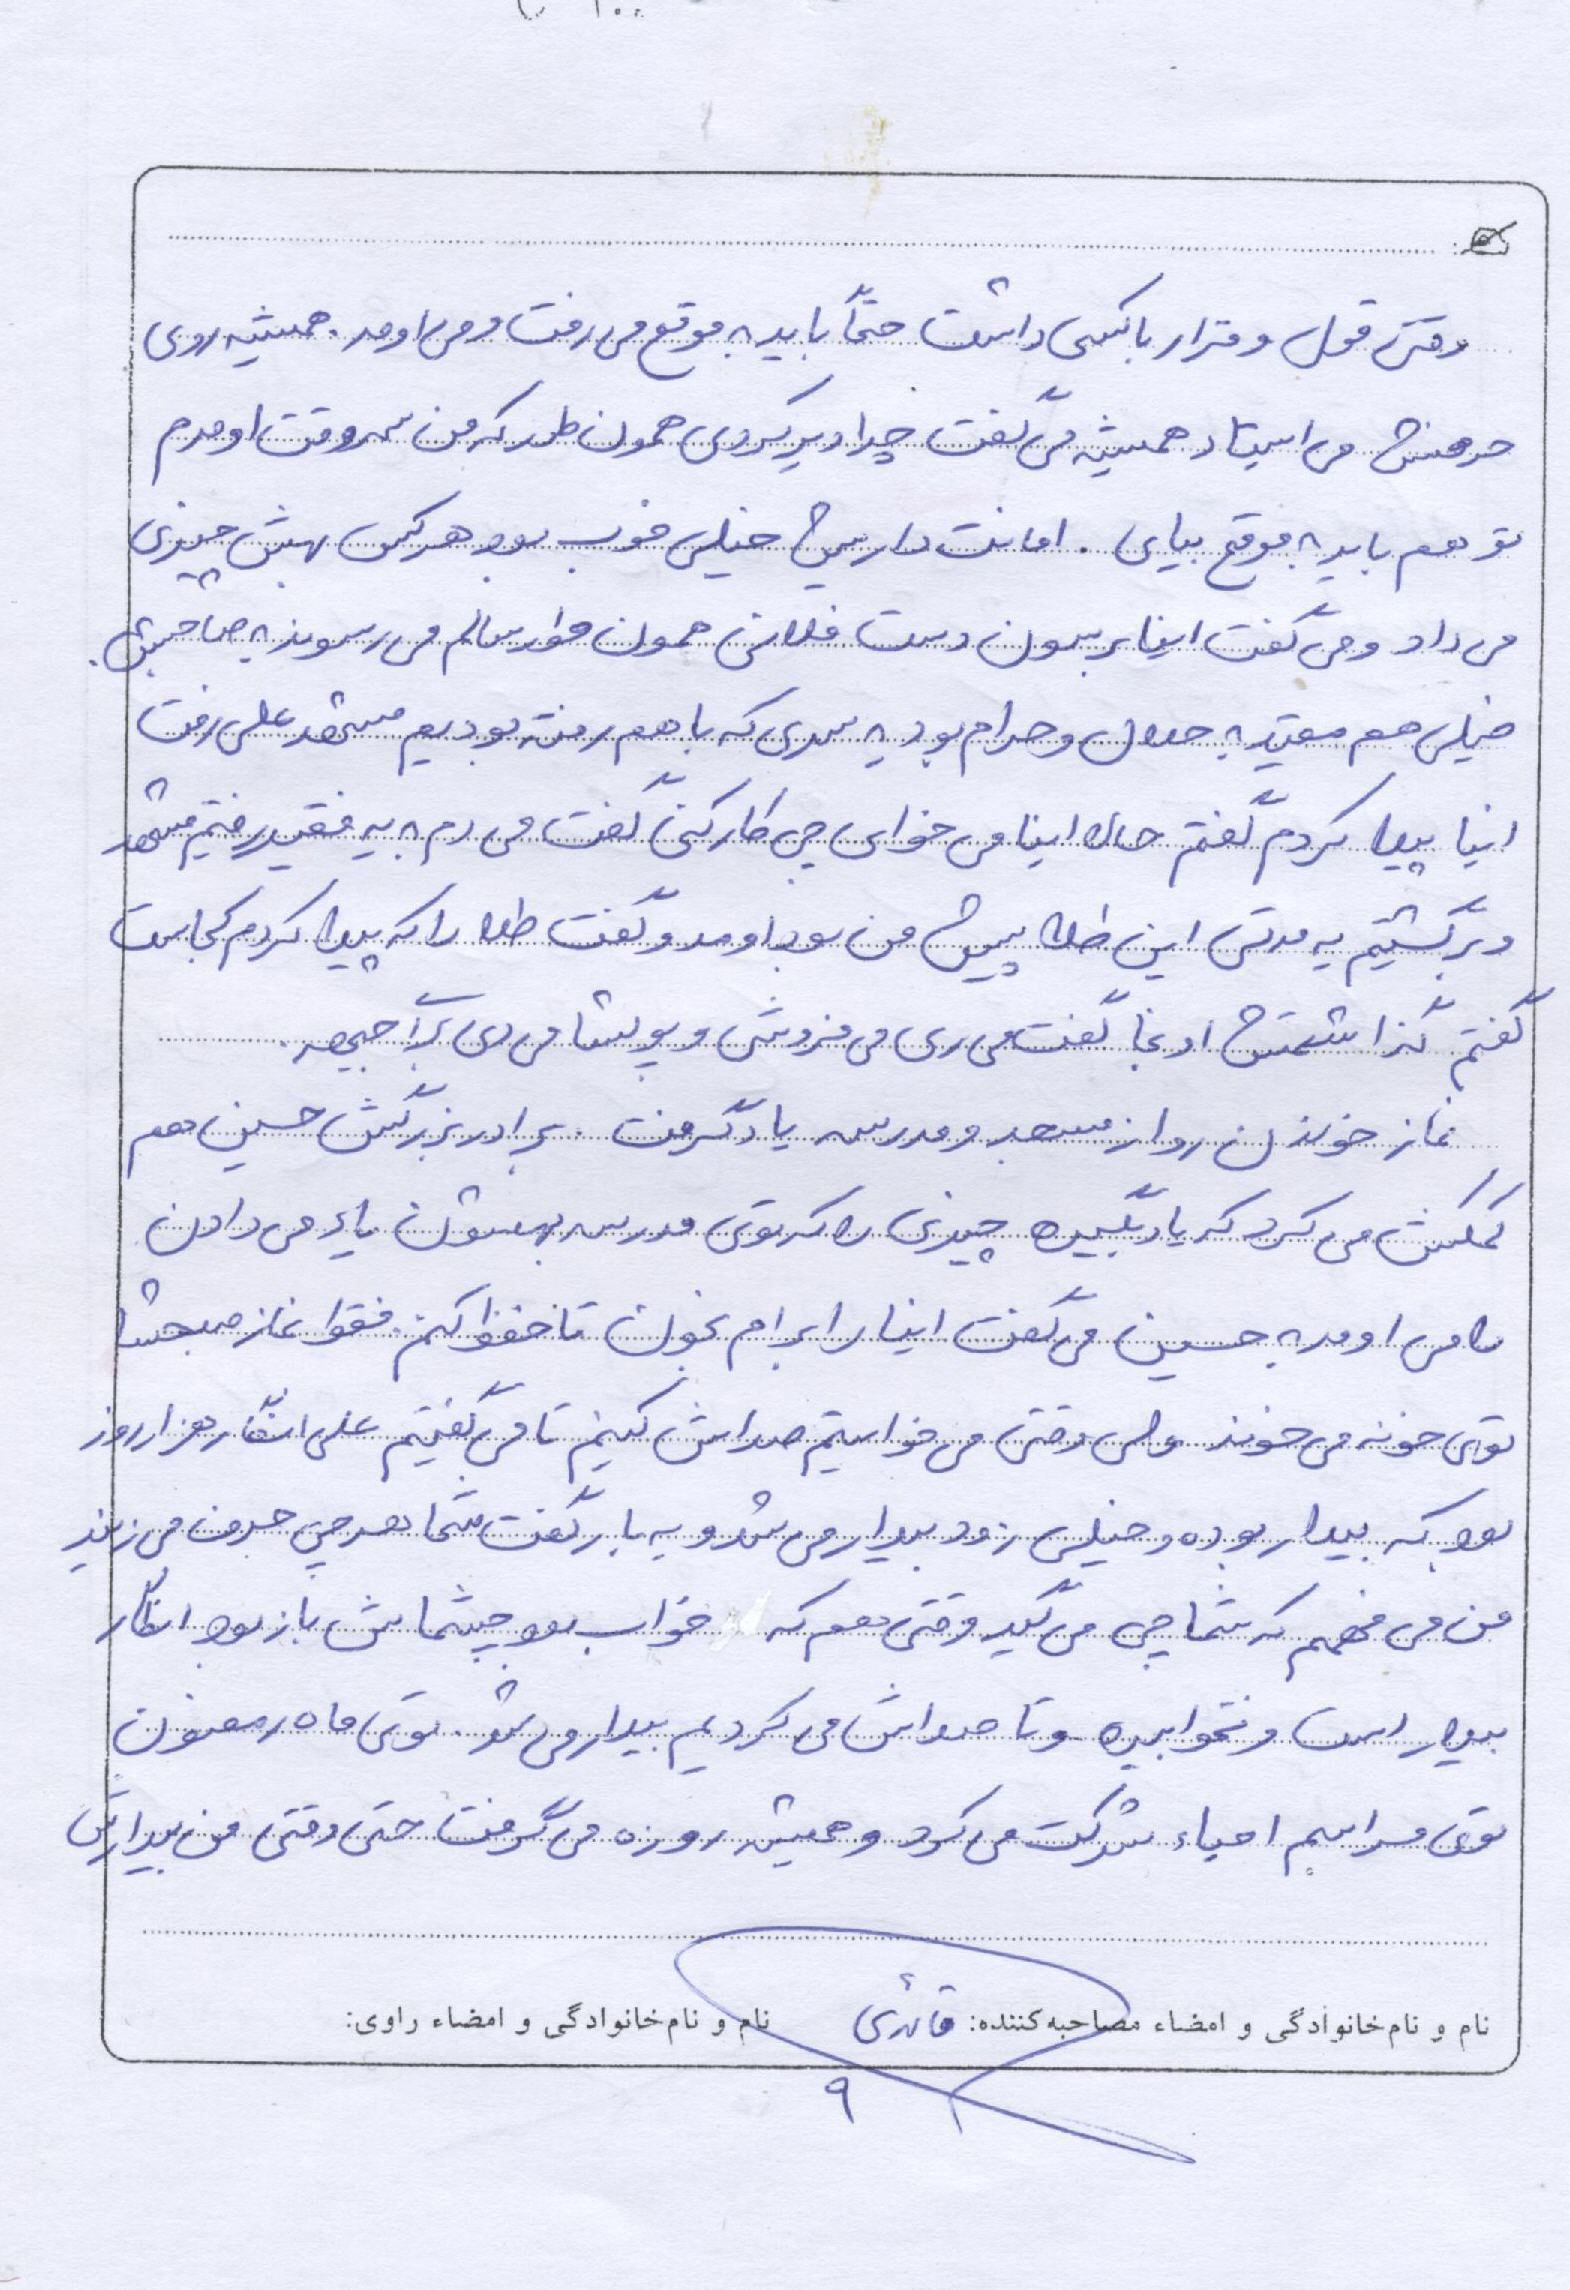 وقتی قول و قرار با کسی داشت حتماً باید به موقع می رفت و می اومد. همیشه روی
حرفش می ایستاد همیشه می گفت چرا دیر کردی همون طور که من سر وقت اومدم
تو هم باید به موقع بیای. امانت داریش خیلی خوب بود هر کس بهش چیزی
می داد و می گفت اینا برسون دست فلانی همون طور سالم می رسوند به صاحبش.
خیلی هم مقید به حلال و حرام بود یه سری که با هم رفته بودیم مشهد علی رفت
اینا پیدا کردم گفتم حالا اینا می خوای چی کار کنی گفت می دم به یه فقیر رفتیم مشهد
و برگشتیم یه مدتی این طلا پیش من بود اومد و گفت طلا را که پیدا کردم کجاست
گفتم گذاشتمش اونجا گفت می ری می فروشی و پولشا می دی برا جبهه.
نماز خوندن رو از مسجد و مدرسه یاد گرفت. برادر بزرگش حسین هم
کمکش می کرد که یاد بگیره چیزی را که توی مدرسه بهشون یاد می دادن
را می اومد به حسین می گفت اینا را برام بخون تا حفظ کنم. فقط نماز صبحشا
توی خونه می خوند ولی وقتی می خواستیم صداش کنیم تا می گفتیم علی انگار هزار روز
بود که بیدار بوده و خیلی زود بیدار می شد و یه بار گفت شما هر چی حرف می زنید
من می فهمم که شما چی می گید وقتی هم که خواب بود چشماش باز بود انگار
بیدار است و نخوابیده و تا صداش می کردیم بیدار می شد. توی ماه رمضون
توی مراسم احیاء شرکت می کرد و همیشه روزه می گرفت حتی وقتی من بیدارش
نام و نام‌خانوادگی و امضاء مصاحبه‌کننده: قائدی نام و نام‌خانوادگی و امضاء راوی:
۹